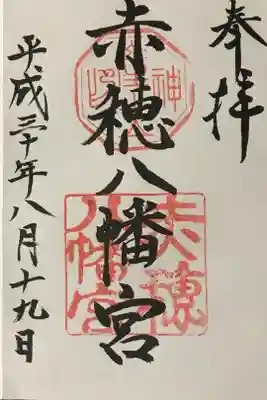 奉拝
赤穂八幡宮
平成三十年八月十九日
赤穂
八幡宮